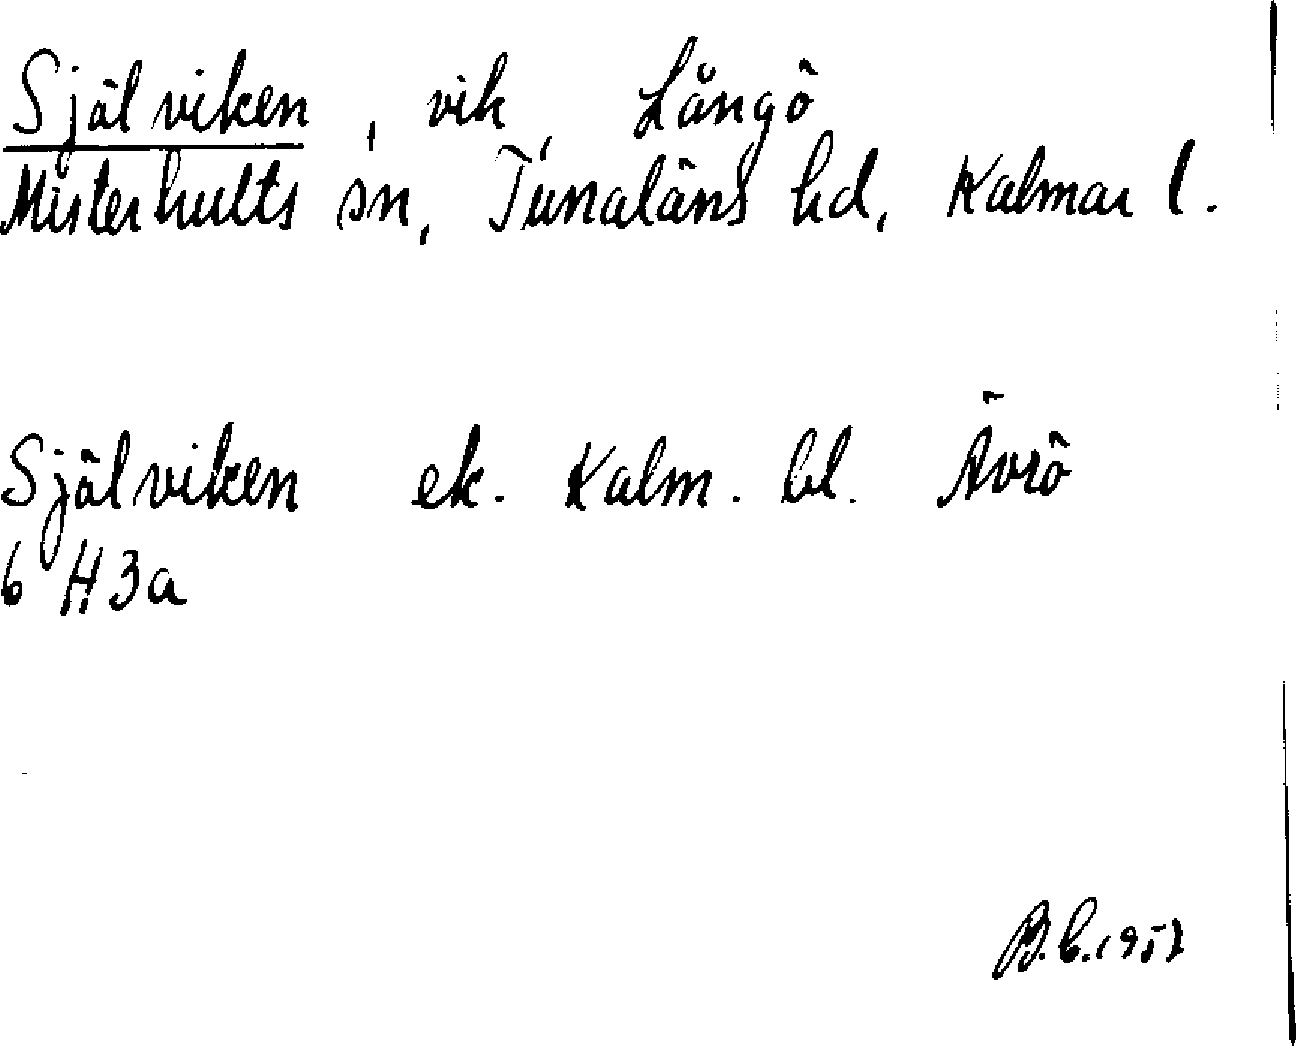 Själviken, vik, Långö
Misterhults sn, Tunaläns hd, Kalmar l.
Själviken ek. Kalm. bl. Ävrö
6 H 3a